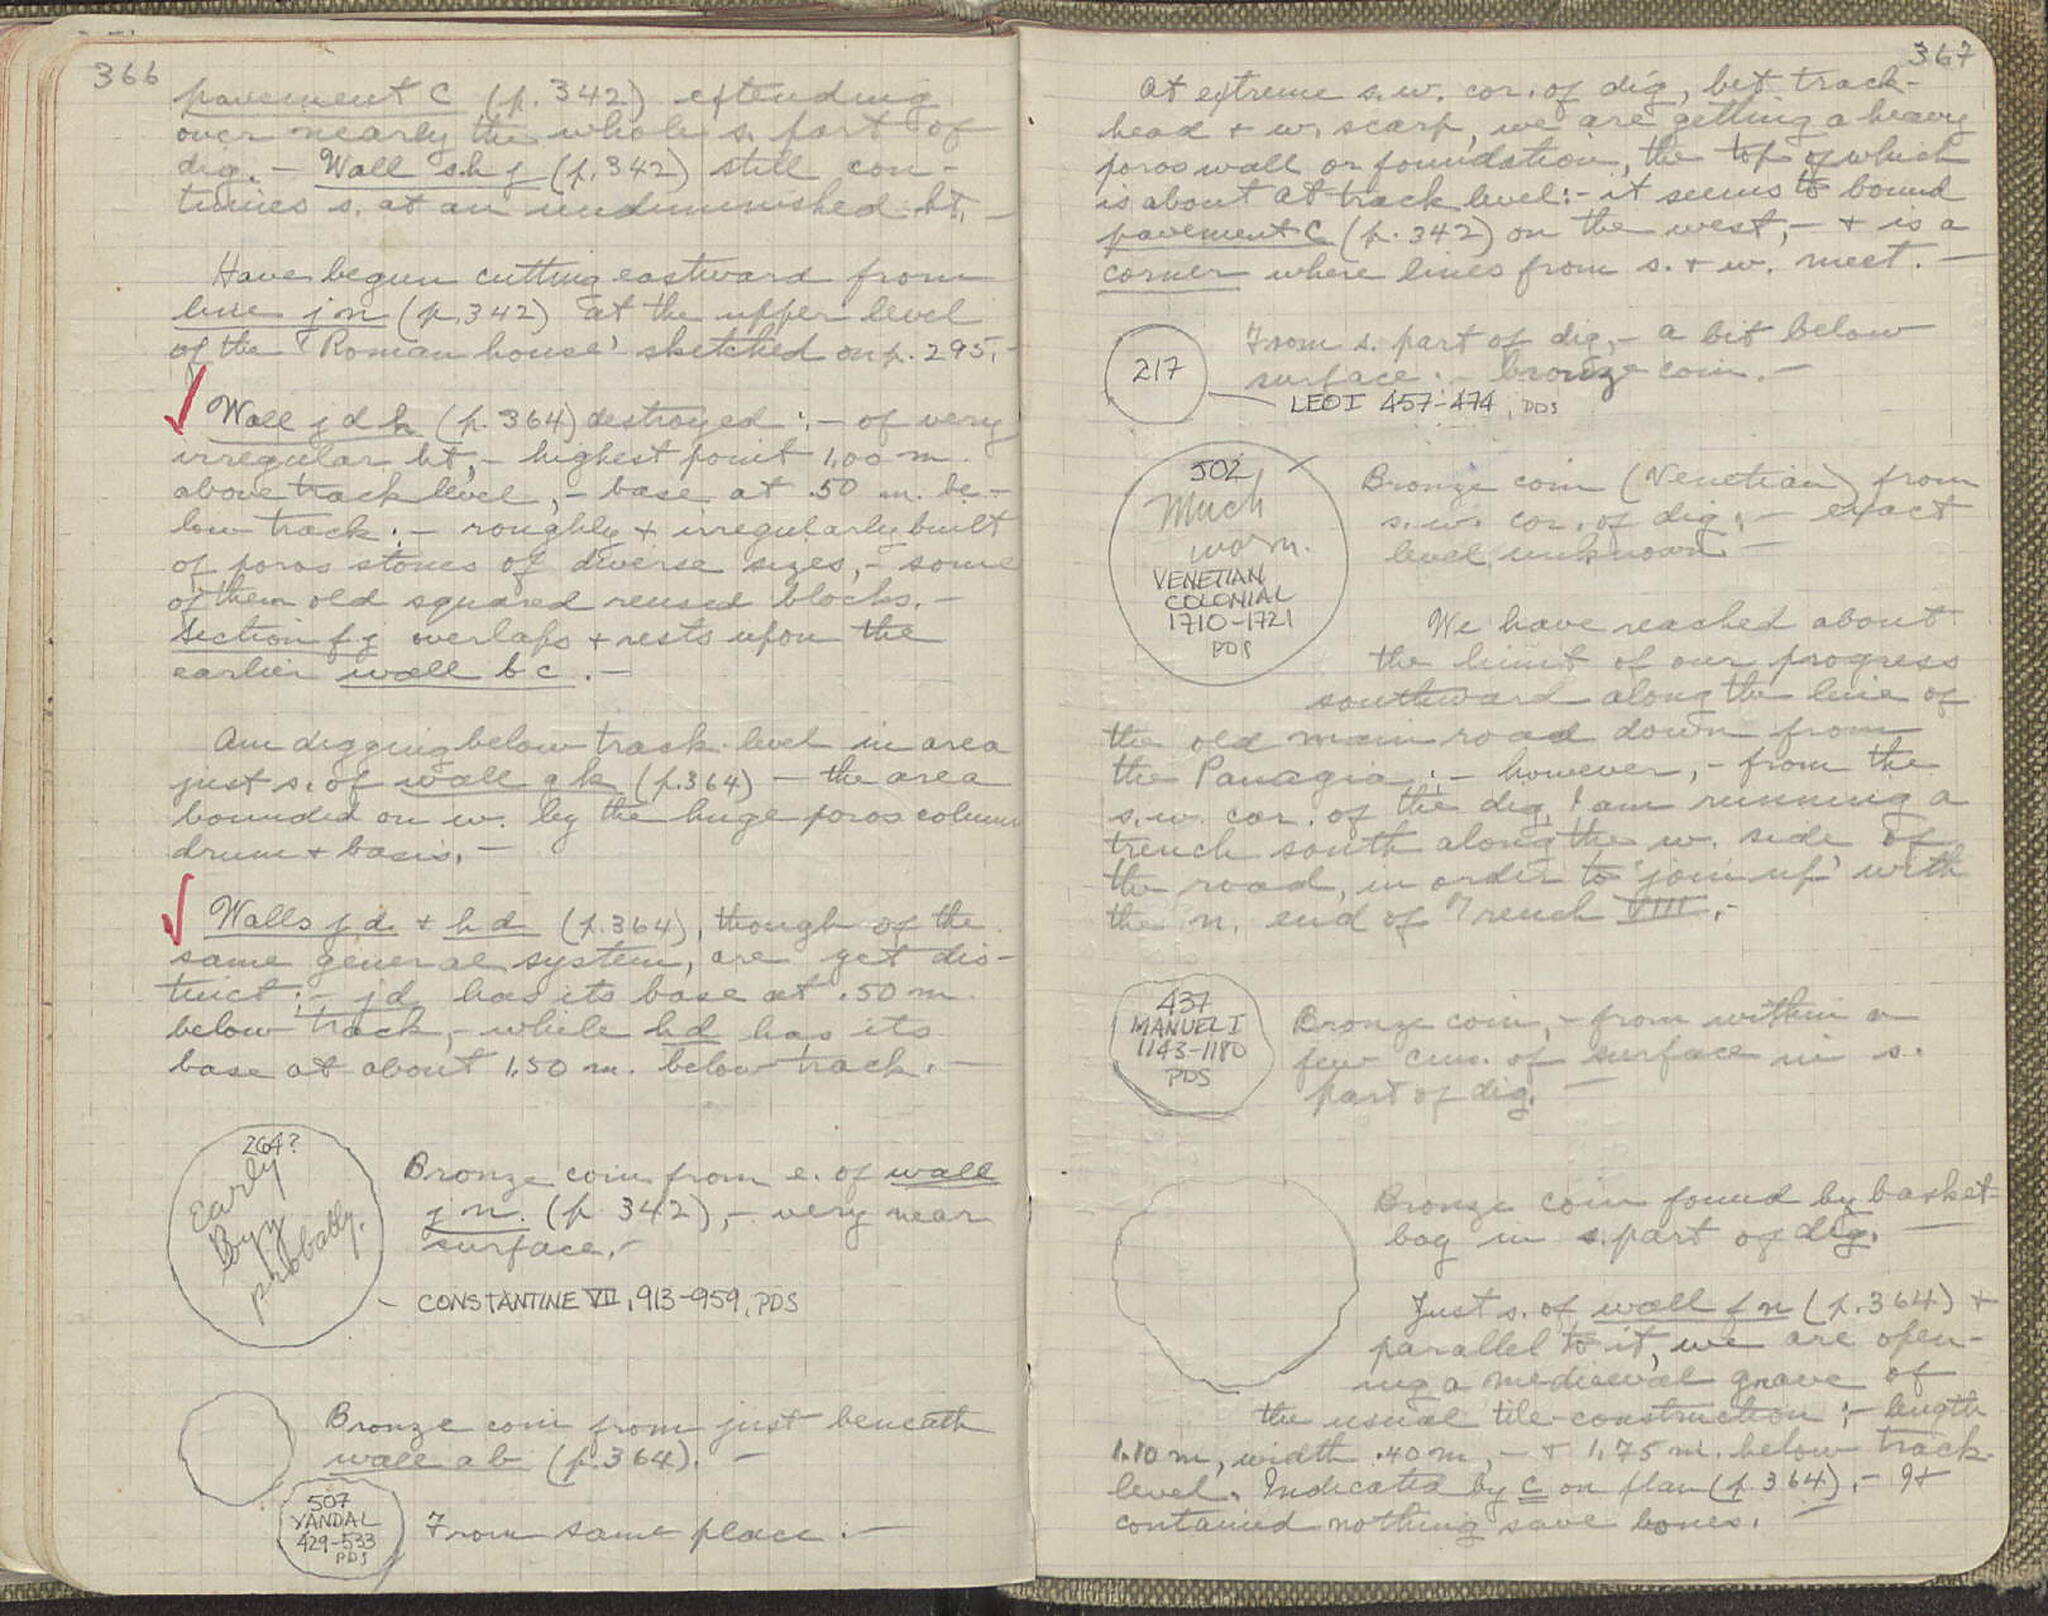 366
pavement C (p. 342) extending
over nearly the whole s. part of
dig. – Wall s h j (p. 342) still con-
tinues s. at an undiminished ht. –
Have begun cutting eastward from
line j n (p. 342) at the upper level
of the 'Roman house' sketched on p. 295. –
Wall j d h (p. 364) destroyed :– of very
irregular ht, – highest point 1.00 m.
above track level, – base at .50 m. be-
low track :– roughly & irregularly built
of poros stones of diverse sizes, – some
of them old squared reused blocks. –
Section f j overlaps & rests upon the
earlier wall b c. –
Am digging below track level in area
just s. of wall g k (p. 364) – the area
bounded on w. by the huge poros column
drum & basis. –
Walls j d & h d (p. 364), though of the
same general system, are yet dis-
tinct :– j d has its base at .50 m.
below track, – while h d has its
base at about 1.50 m. below track. –
264?
Early
Byz
probably.
Bronze coin from e. of wall
j n. (p. 342), – very near
surface. –
CONSTANTINE VII, 913-959, PDS
Bronze coin from just beneath
wall a b (p. 364). –
507
VANDAL
429-533
PDS
From same place. –
367
At extreme s.w. cor. of dig, bet. track-
head & w. scarp, we are getting a heavy
poros wall or foundation, the top of which
is about at track level :– it seems to bound
pavement C (p. 342) on the west, – & is a
corner where lines from s. & w. meet. –
217
From s. part of dig, – a bit below
surface. – bronze coin. –
LEO I 457-474, PDS
502
Much
worn.
VENETIAN
COLONIAL
1710-1721
PDS
Bronze coin (Venetian) from
s.w. cor. of dig, – exact
level unknown –
We have reached about
the limit of our progress
southward along the line of
the old main road down from
the Panagia :– however, – from the
s.w. cor. of the dig, I am running a
trench south along the w. side of
the road, in order to 'join up' with
the n. end of Trench VIII. –
437
MANUEL I
1143-1180
PDS
Bronze coin, – from within a
few cms. of surface in s.
part of dig. –
Bronze coin found by basket-
boy in s. part of dig. –
Just s. of wall f n (p. 364) &
parallel to it, we are open-
ing a mediaeval grave of
the usual tile-construction :– length
1.10 m, width .40 m, – & 1.75 m. below track-
level. Indicated by C on plan (p. 364). – It
contained nothing save bones. –